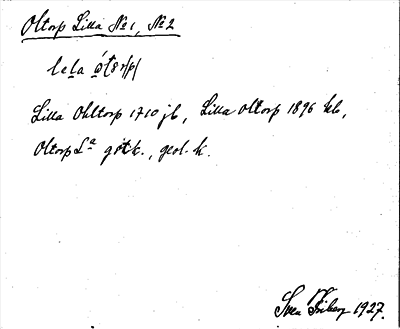 Oltorp Lilla No 1, No 2
Lilla Ohltorp 1710 jb, Lilla Oltorp 1896 kb,
Oltorp La göt k., geol. k.
Sven Friberg 1927.